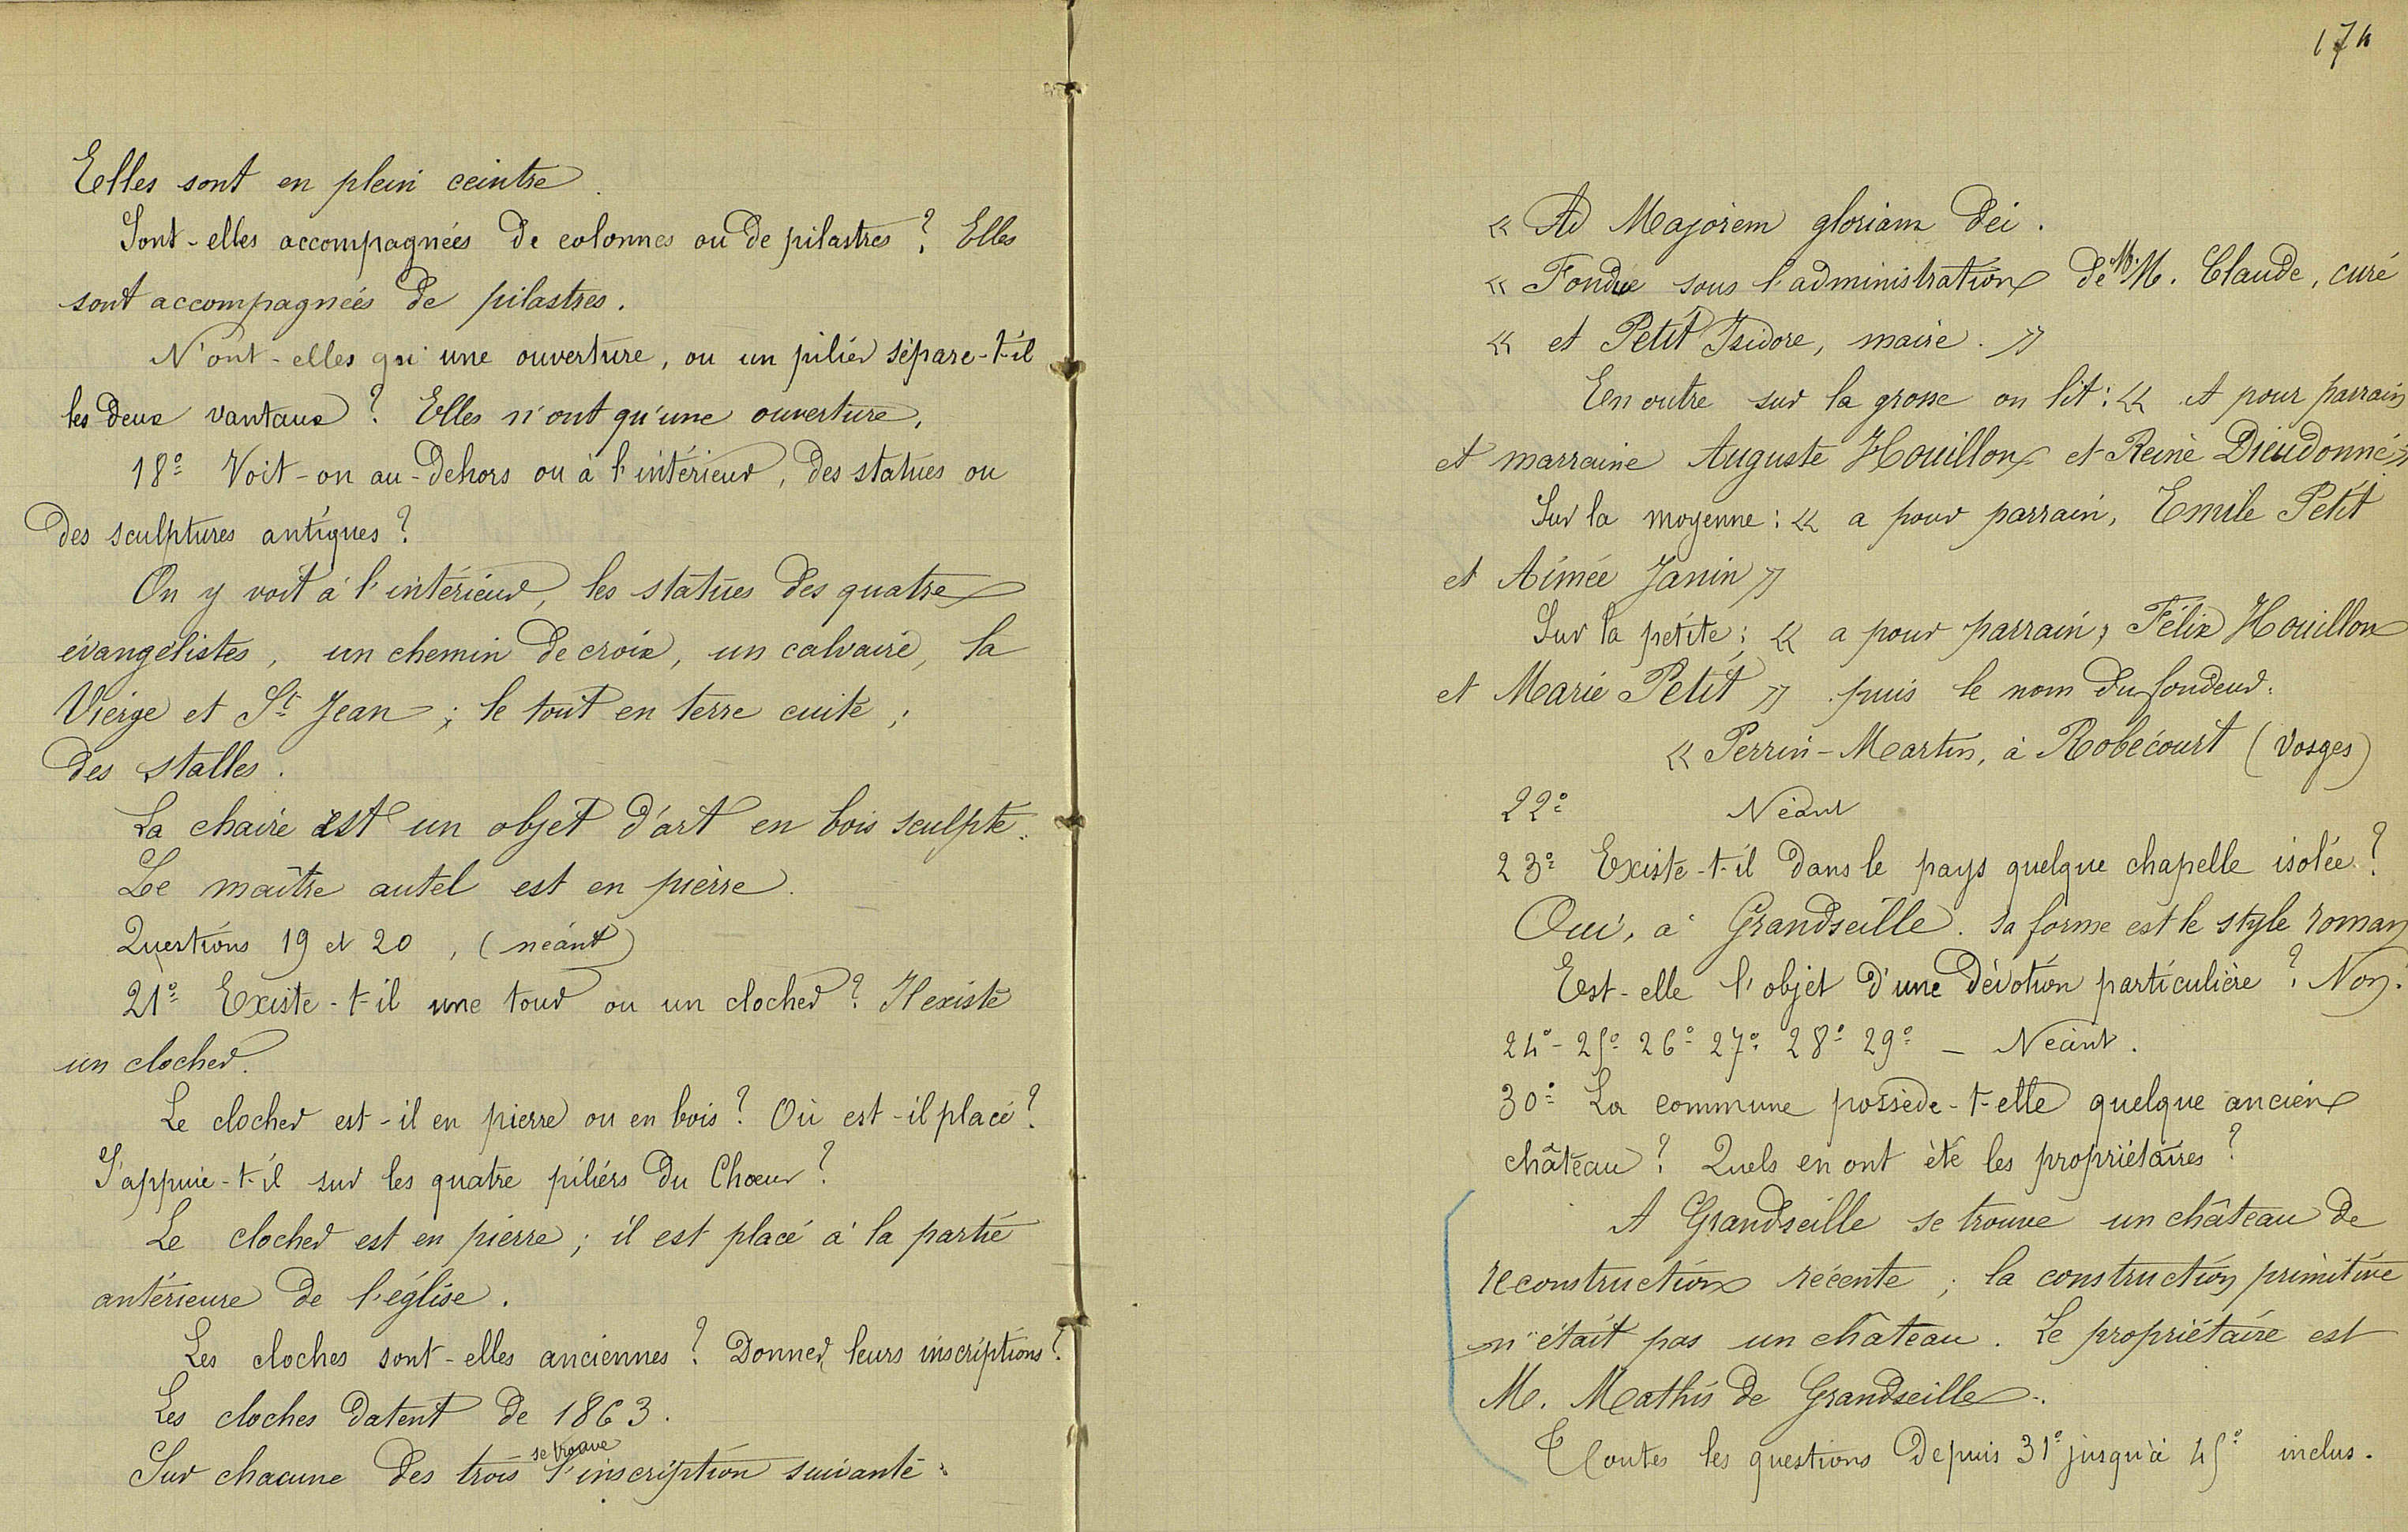 Elles sont en plein ceintre.
Sont-elles accompagnées de colonnes ou de pilastres ? Elles
sont accompagnées de pilastres.
N'ont-elles qu'une ouverture, ou un pilier sépare-t-il
les deux vantaux ? Elles n'ont qu'une ouverture.
18° Voit-on au-dehors ou à l'intérieur, des statues ou
des sculptures antiques ?
On y voit à l'intérieur, les statues des quatre
évangélistes, un chemin de croix, un calvaire, la
Vierge et St Jean ; le tout en terre cuite ;
des stalles.
La chaire est un objet d'art en bois sculpté.
Le maître autel est en pierre.
Questions 19 et 20, (néant)
21° Existe-t-il une tour ou un clocher ? Il existe
un clocher.
Le clocher est-il en pierre ou en bois ? Où est-il placé ?
S'appuie-t-il sur les quatre piliers du Chœur ?
Le clocher est en pierre ; il est placé à la partie
antérieure de l'église.
Les cloches sont-elles anciennes ? Donner leurs inscriptions ?
Les cloches datent de 1863.
Sur chacune des trois se trouve l'inscription suivante :
174
« Ad Majorem gloriam Dei.
« Fondue sous l'administration de M.M. Claude, curé
« et Petit Isidore, maire. »
En outre sur la grosse on lit : « et pour parrain
et marraine Auguste Houillon et Reine Dieudonné »
Sur la moyenne : « a pour parrain, Emile Petit
et Aimée Janin »
Sur la petite ; « a pour parrain, Félix Houillon
et Marie Petit » puis le nom du fondeur.
« Perrin-Martin, à Robécourt (Vosges)
22° Néant
23° Existe-t-il dans le pays quelque chapelle isolée ?
Oui, à Grandseille. sa forme est le style roman
Est-elle l'objet d'une dévotion particulière ? Non.
24° - 25° 26° 27° 28° 29° - Néant.
30° La commune possède-t-elle quelque ancien
château ? Quels en ont été les propriétaires ?
A Grandseille se trouve un château de
reconstruction récente ; la construction primitive
n'était pas un château. Le propriétaire est
M. Mathis de Grandseille.
Toutes les questions depuis 31° jusqu'à 45° inclus.